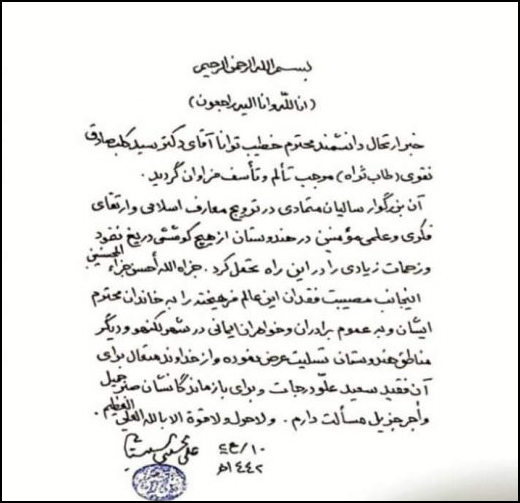 بسم الله الرحمن الرحیم
(انا لله وانا الیه راجعون)
خبر ارتحال دانشمند محترم خطیب توانا آقای دکتر سید کلب صادق
نقوی (طاب ثراه) موجب تألم و تأسف فراوان گردید.
آن بزرگوار سالیان متمادی در ترویج معارف اسلامی و ارتقای
فکری و علمی مؤمنین در هندوستان از هیچ کوششی دریغ ننمود
و زحمات زیادی را در این راه تحمل کرد. جزاه الله أحسن جزاء المحسنین
اینجانب مصیبت فقدان این عالم فرهیخته را به خاندان محترم
ایشان و به عموم برادران و خواهران ایمانی در شهر لکنهو و دیگر
مناطق هندوستان تسلیت عرض نموده و از خداوند متعال برای
آن فقید سعید علوّ درجات و برای بازماندگانشان صبر جمیل
و أجر جزیل مسألت دارم. ولا حول ولا قوة الا بالله العلي العظیم.
١٠/ع٤/
١٤٤٢هـ
علی الحسینی السیستانی